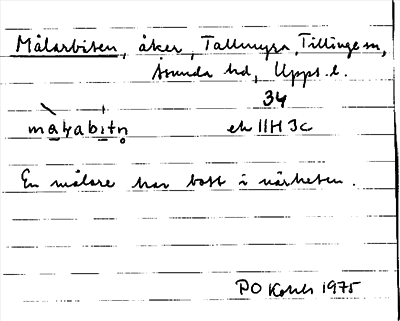 Målarbiten, åker, Tallmyra, Tillinge sn,
Åsunda hd, Upps. l.
34
maḷabitn̥ ek 11H 3c
En målare har bott i närheten.
PO 1975